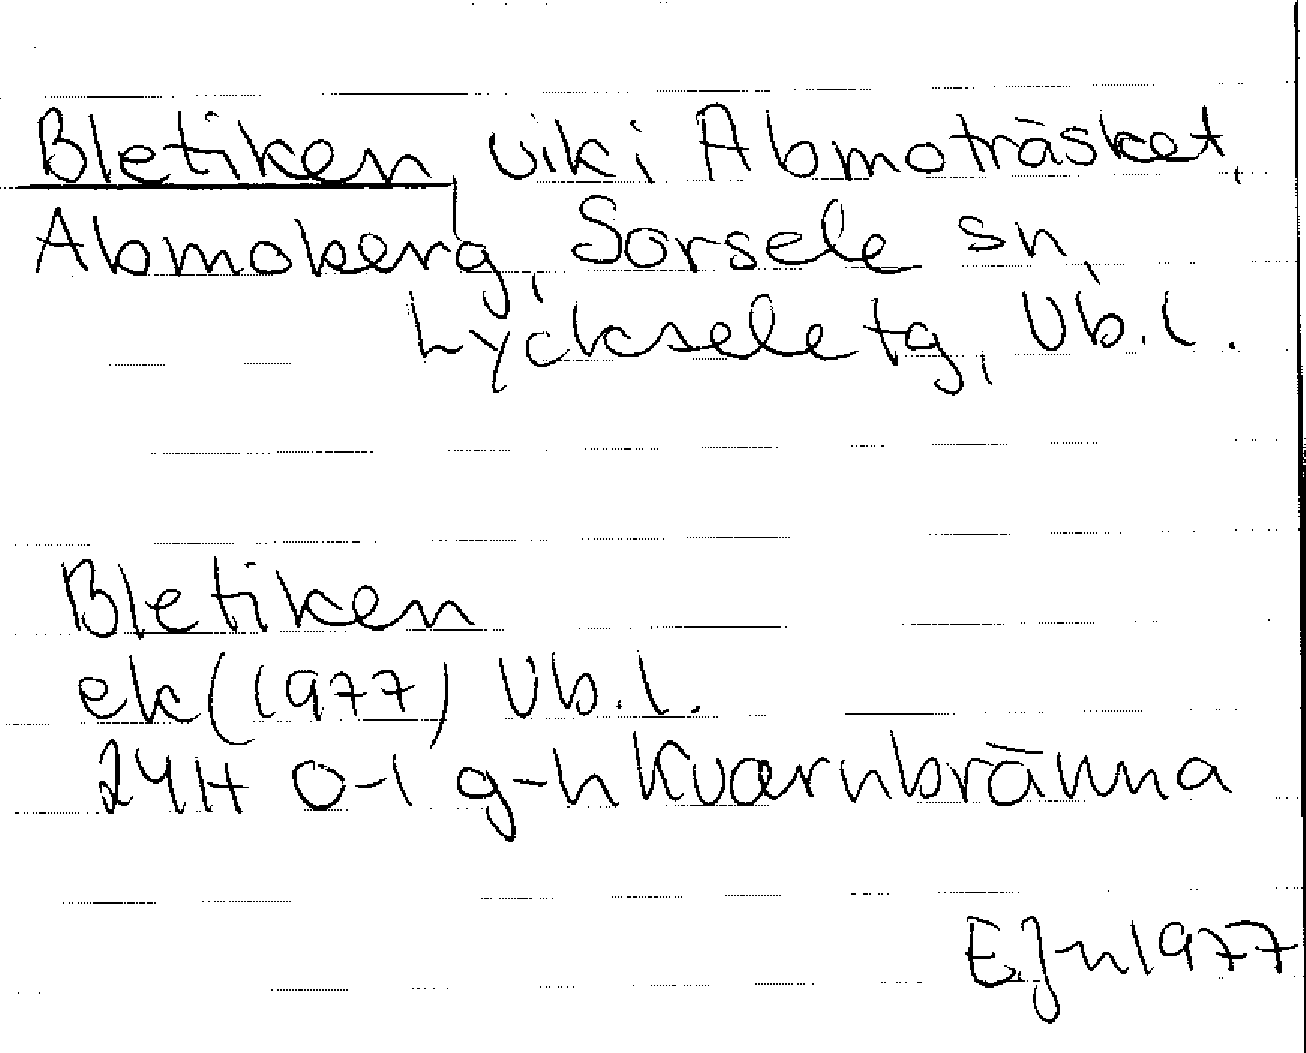 Bletiken, vik i Abmoträsket,
Abmoberg, Sorsele sn,
Lycksele tg, Vb.l.
Bletiken
ek (1977) Vb.l.
24H 0-1 g-h Kvarnbränna
E.J-n 1977